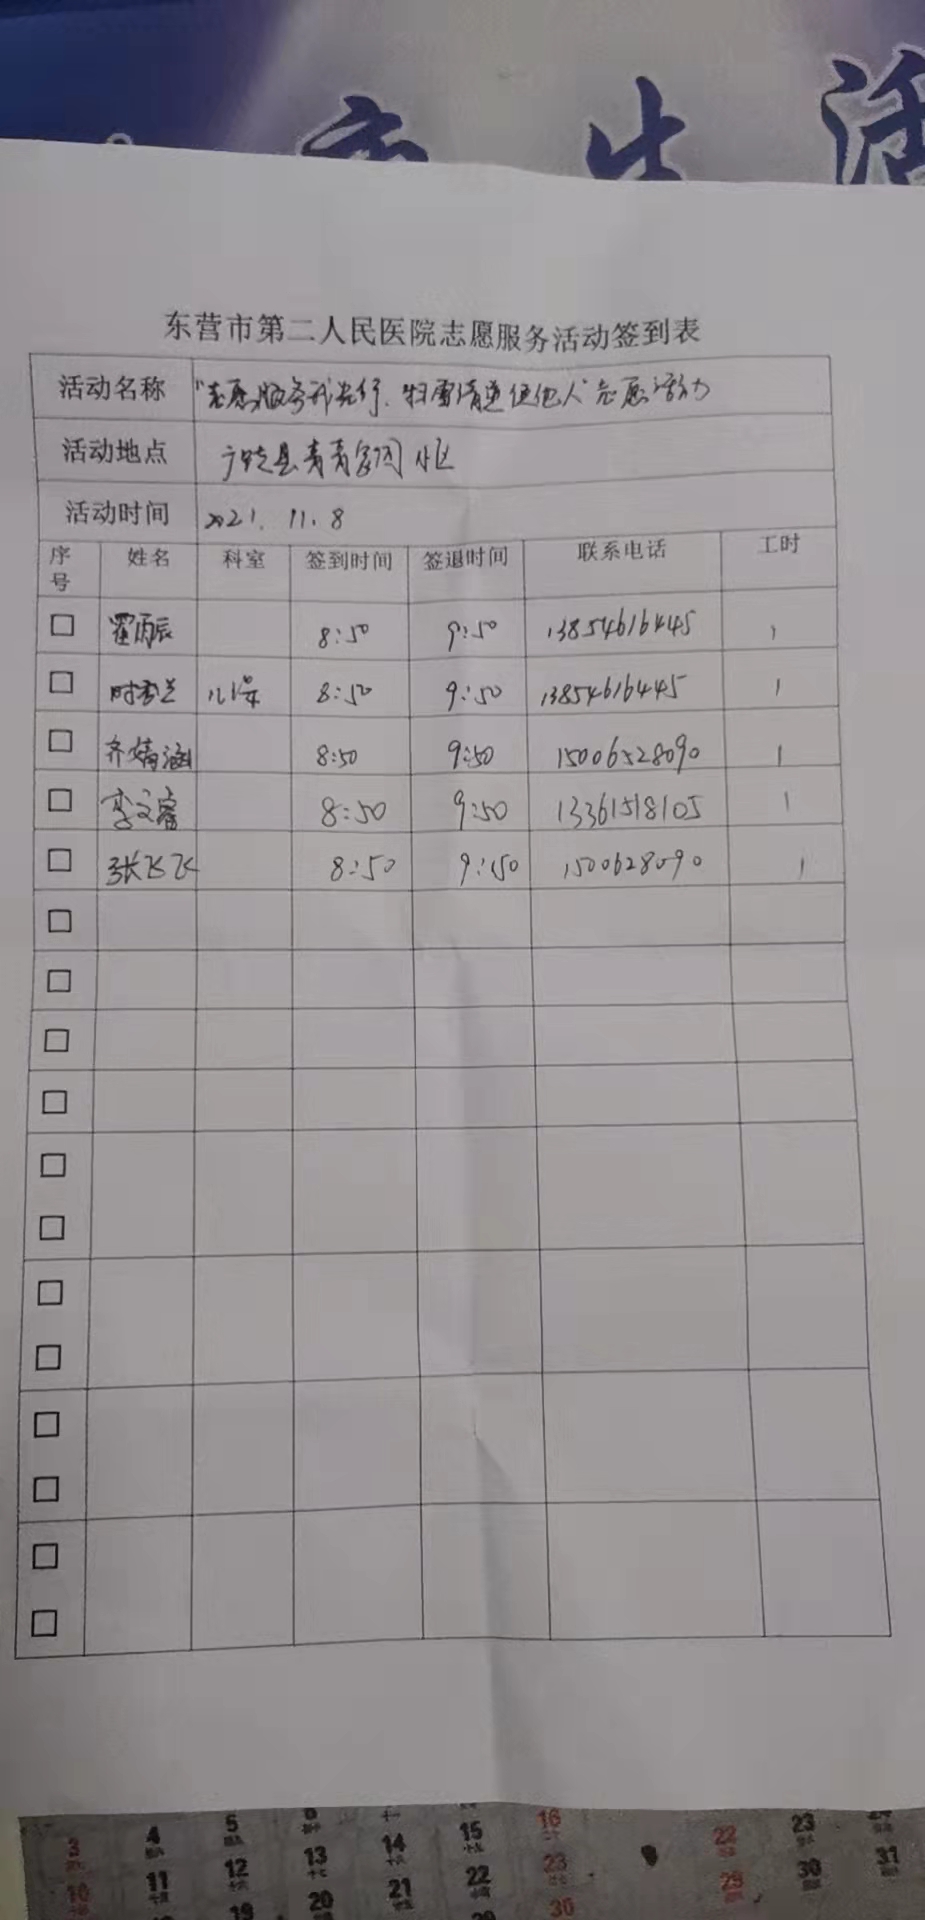 生活
东营市第二人民医院志愿服务活动签到表
活动名称 "志愿服务我先行、扫雪清道便他人"志愿活动
活动地点 广饶县青青家园小区
活动时间 2021.11.8
序号 姓名 科室 签到时间 签退时间 联系电话 工时
□ 翟丙辰 8:50 9:50 13854616445 1
□ 时秀兰 儿保 8:50 9:50 13854616445 1
□ 齐婧涵 8:50 9:50 15006528090 1
□ 李文睿 8:50 9:50 13361518105 1
□ 张飞飞 8:50 9:50 1500628090 1
□
□
□
□
□
□
□
□
□
□
□
□
3 4 5 6 14 15 16 22 23
10 11 12 13 21 22 23 29 30 31
19 20 30